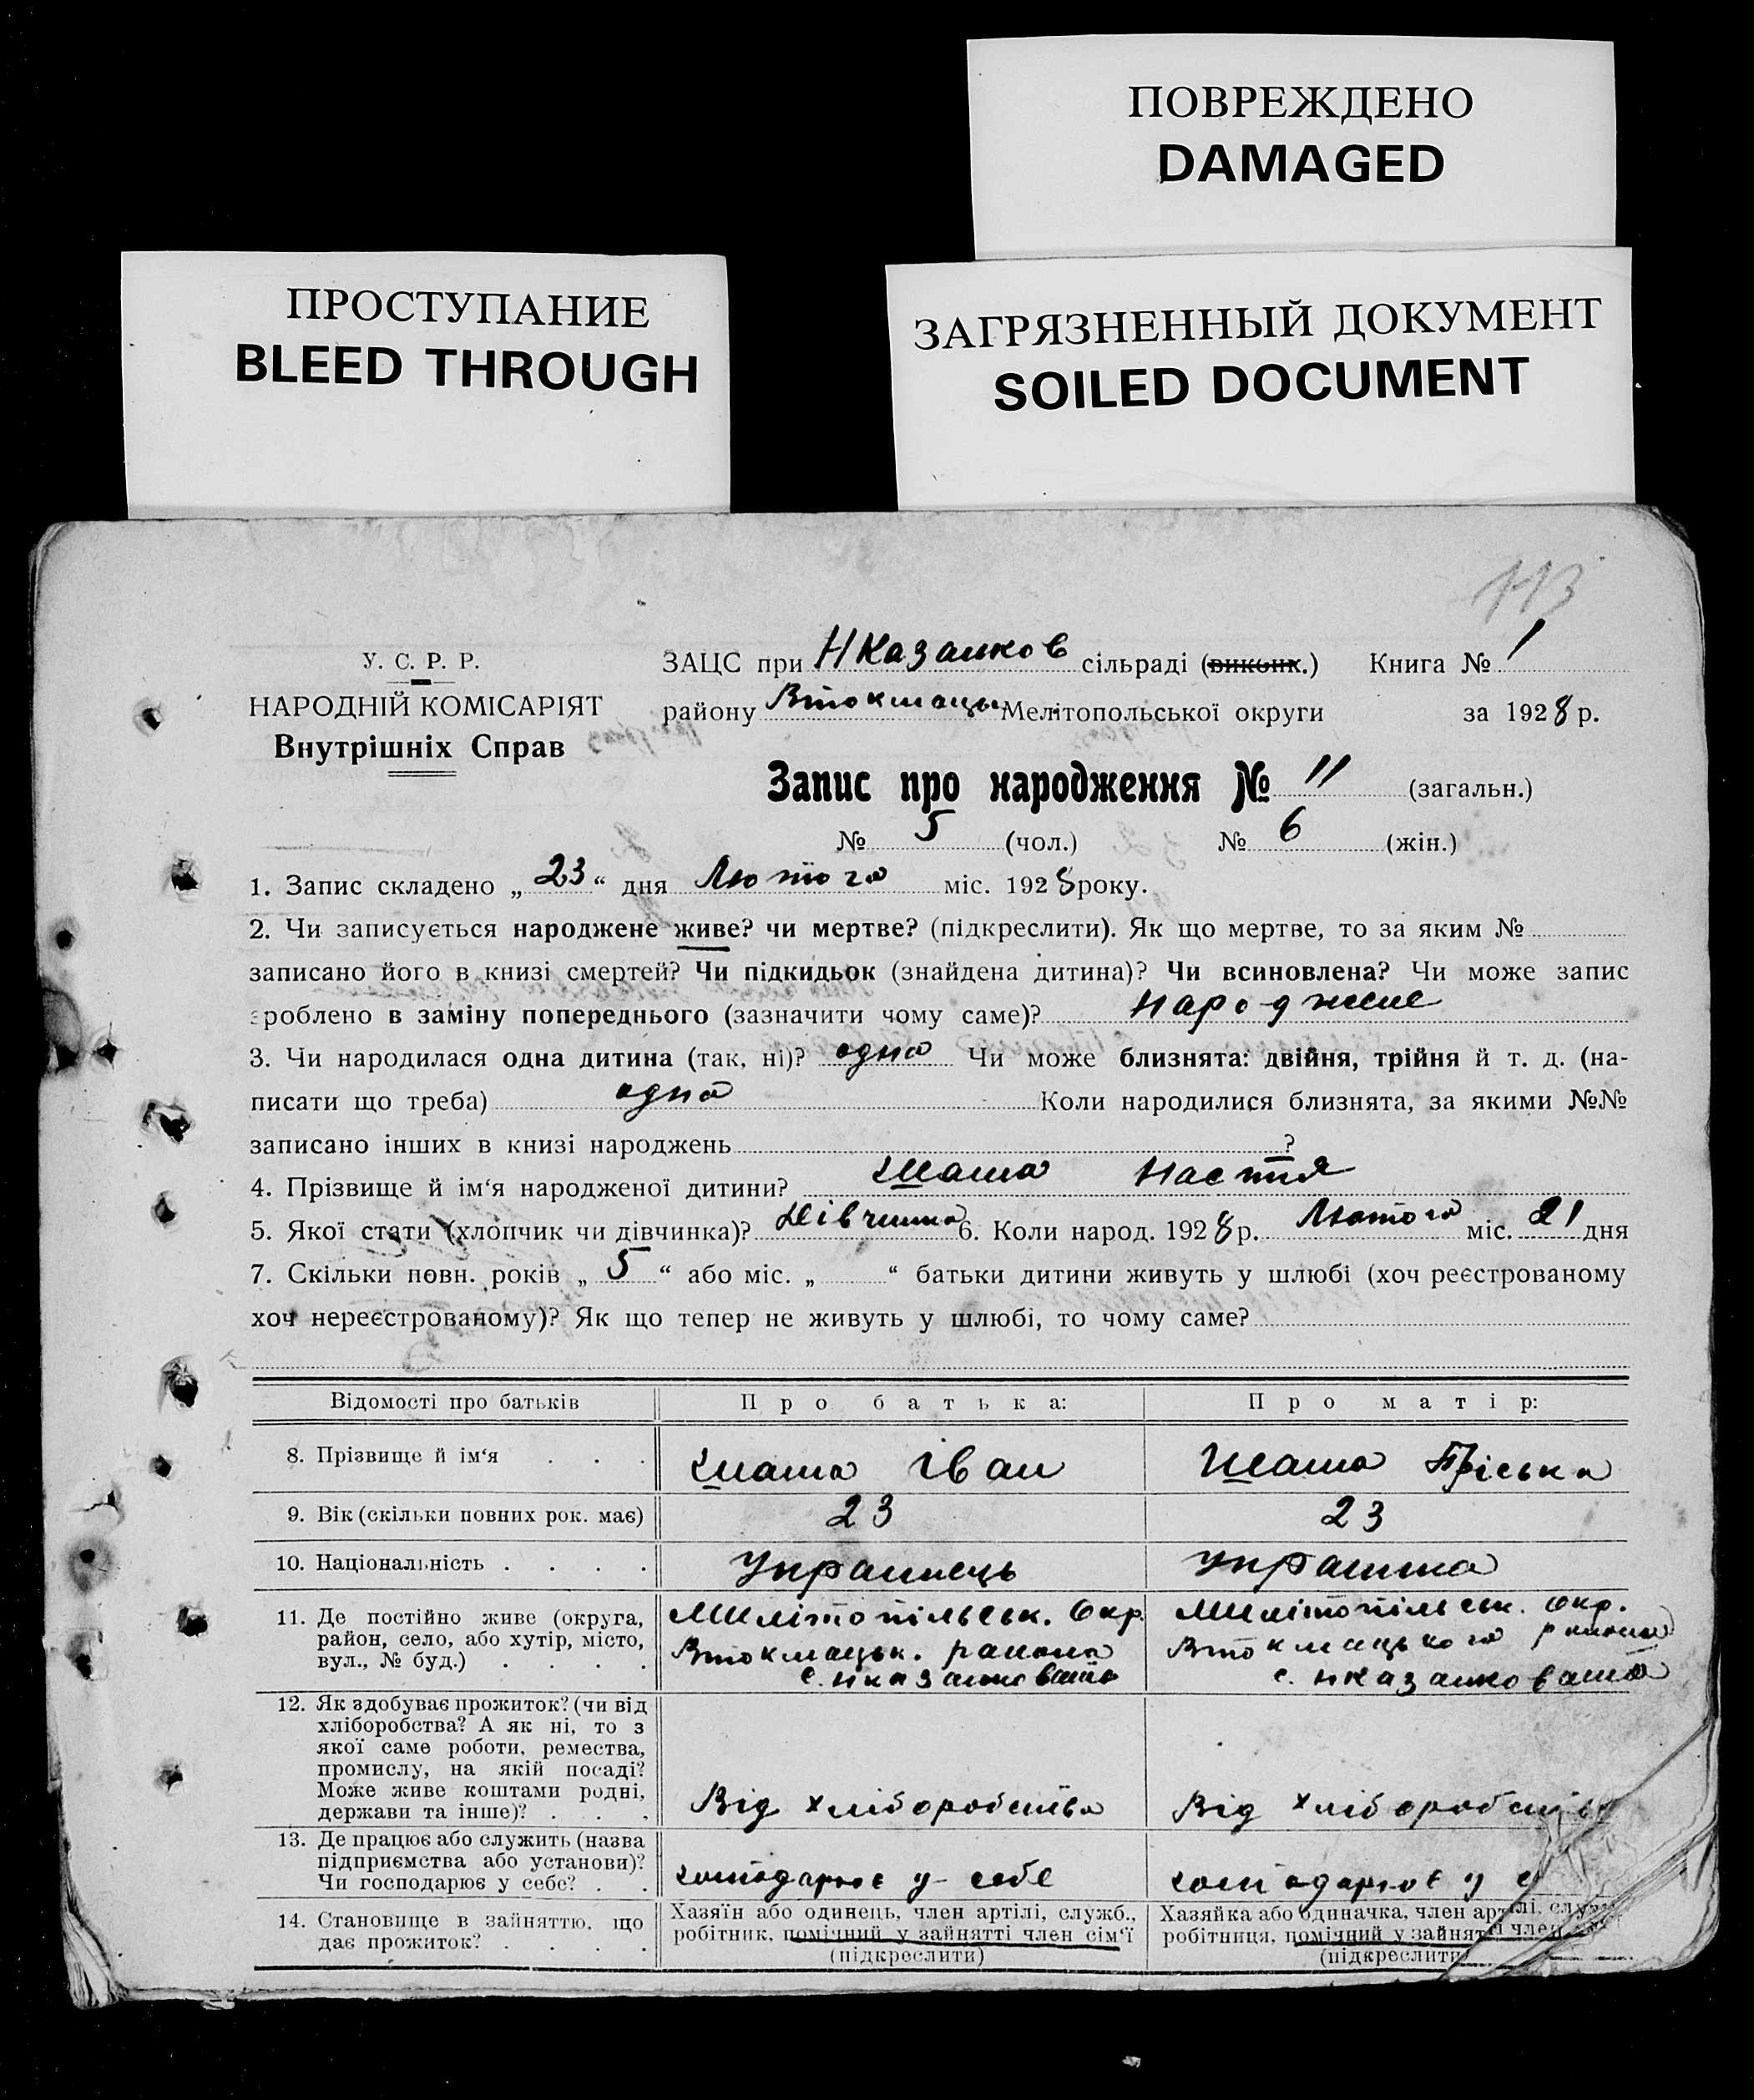 ПОВРЕЖДЕНО
DAMAGED
ПРОСТУПАНИЕ
BLEED THROUGH
ЗАГРЯЗНЕННЫЙ ДОКУМЕНТ
SOILED DOCUMENT
113
У. С. Р. Р.
НАРОДНІЙ КОМІСАРІЯТ
Внутрішніх Справ
ЗАЦС при НКазанков сільраді (виконк.) Книга № 1
району Втокмацьк Мелітопольської округи за 1928 р.
Запис про народження № 11 (загальн.)
№ 5 (чол.) № 6 (жін.)
1. Запис складено „23“ дня Лютого міс. 1928 року.
2. Чи записується народжене живе? чи мертве? (підкреслити). Як що мертве, то за яким №
записано його в книзі смертей? Чи підкидьок (знайдена дитина)? Чи всиновлена? Чи може запис
зроблено в заміну попереднього (зазначити чому саме)? Народжене
3. Чи народилася одна дитина (так, ні)? одна Чи може близнята: двійня, трійня й т. д. (на-
писати що треба) одна Коли народилися близнята, за якими №№
записано інших в книзі народжень ?
4. Прізвище й ім‘я народженої дитини? Настя
5. Якої стати (хлопчик чи дівчинка)? Дівчинка 6. Коли народ. 1928 р. Лютого міс. 21 дня
7. Скільки повн. років „5“ або міс. „ “ батьки дитини живуть у шлюбі (хоч реєстрованому
хоч нереєстрованому)? Як що тепер не живуть у шлюбі, то чому саме?
Відомості про батьків Про батька: Про матір:
8. Прізвище й ім‘я . . . Іван Пріська
9. Вік (скільки повних рок. має) 23 23
10. Національність . . . . Українець Українка
11. Де постійно живе (округа,
район, село, або хутір, місто,
вул., № буд.) . . . .
Милітопільськ. Окр.
Втокмацьк. района
с. Нказанковата
Милітопільськ. окр.
Втокмацького района
с. Нказанковата
12. Як здобуває прожиток? (чи від
хліборобства? А як ні, то з
якої саме роботи, ремества,
промислу, на якій посаді?
Може живе коштами родні,
держави та інше)? . . .
Від хліборобства Від хліборобства
13. Де працює або служить (назва
підприємства або установи)?
Чи господарює у себе? . .
господарює у себе господарює у
14. Становище в зайняттю, що
дає прожиток? . . . .
Хазяїн або одинець, член артілі, служб.,
робітник, помічний у зайнятті член сім‘ї
(підкреслити)
Хазяйка або одиначка, член артілі,
робітниця, помічний у зайнятті член
(підкреслити)